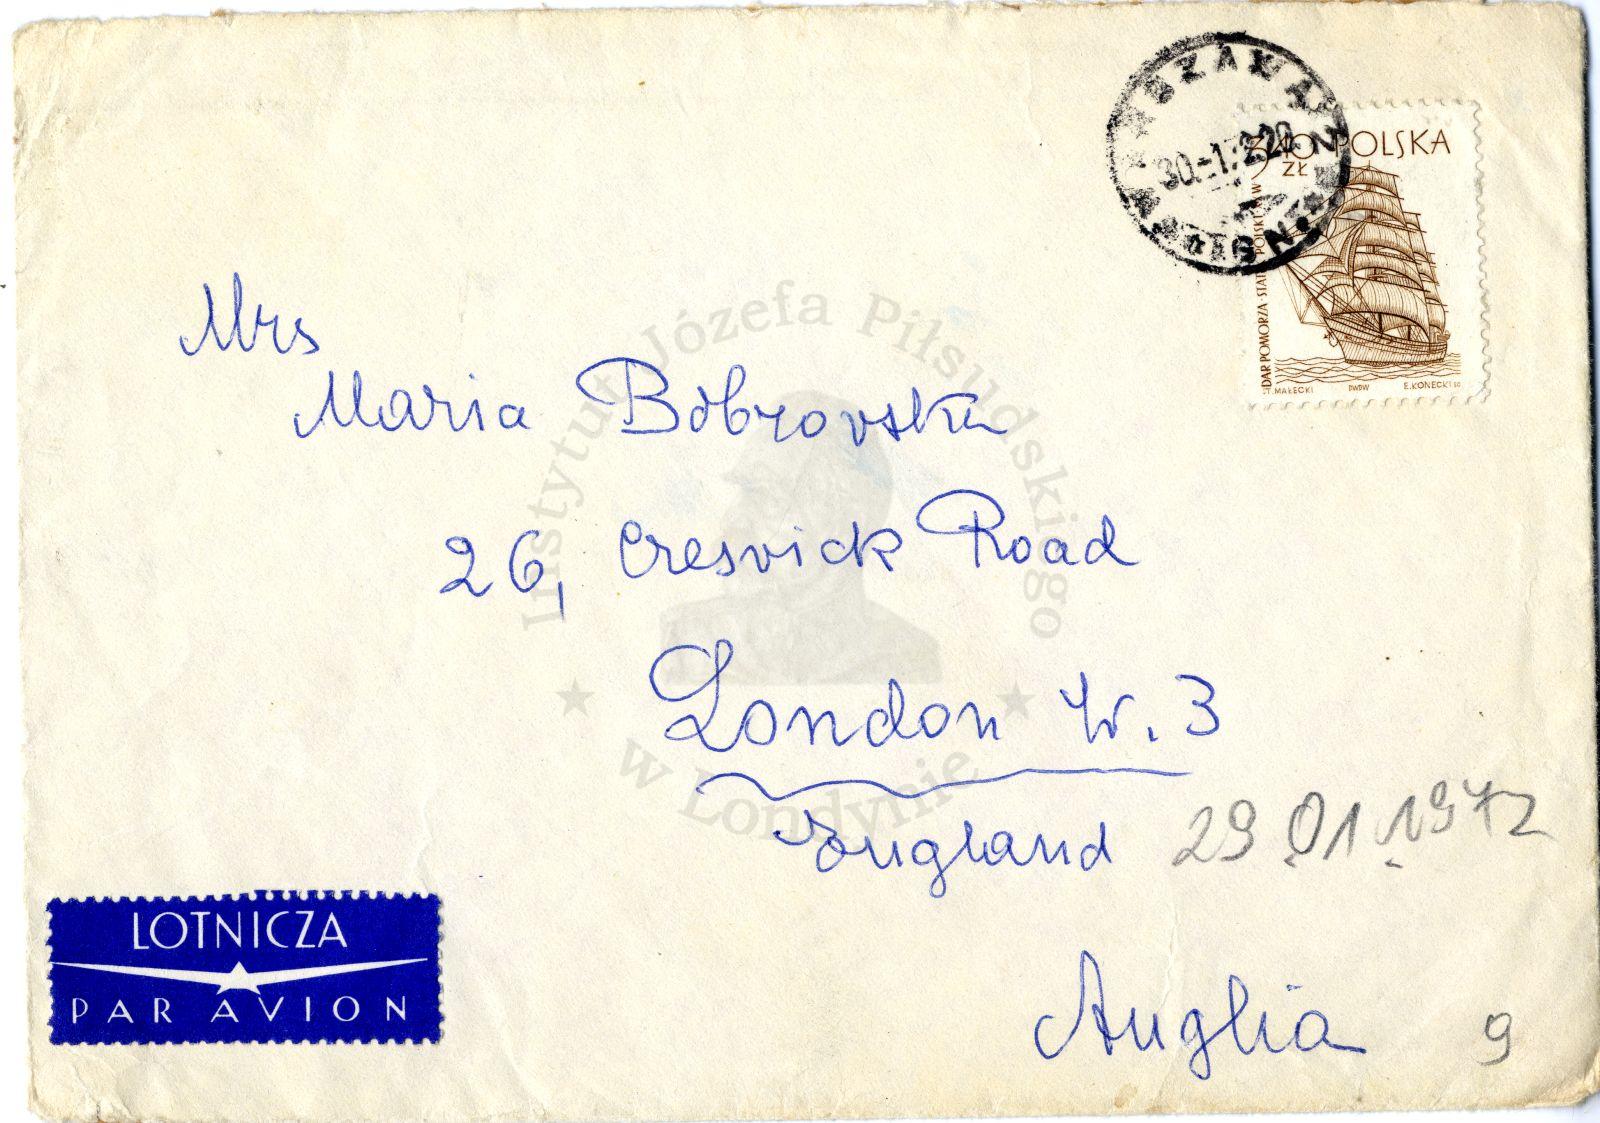 WARSZAWA
30.-1.72.20
3,40 POLSKA
ZŁ
DAR POMORZA · STATEK POLSKI
ST. MAŁECKI PWPW E. KONECKI
Mrs
Maria Bobrovska
26, Cresvick Road
London W. 3
England 29.01.1972
Anglia 9
LOTNICZA
PAR AVION
Instytut Józefa Piłsudskiego
w Londynie